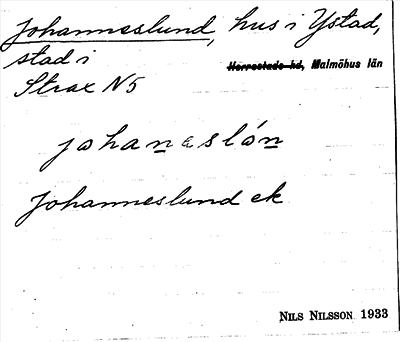 Johanneslund, hus i Ystad,
stad i
Herrestads hd, Malmöhus län
Strax N5
johanaslón
Johanneslund ek
NILS NILSSON 1933